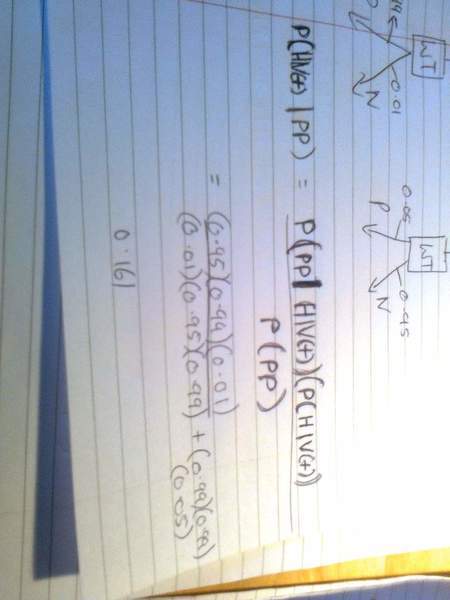 WT WT
0.01 0.05 0.95
N P N
P(HIV(+) | PP) = P(PP | HIV(+))(P(HIV(+))
P(PP)
= (0.95)(0.99)(0.01)
(0.01)(0.95)(0.99) + (0.99)(0.99)
(0.05)
0.161